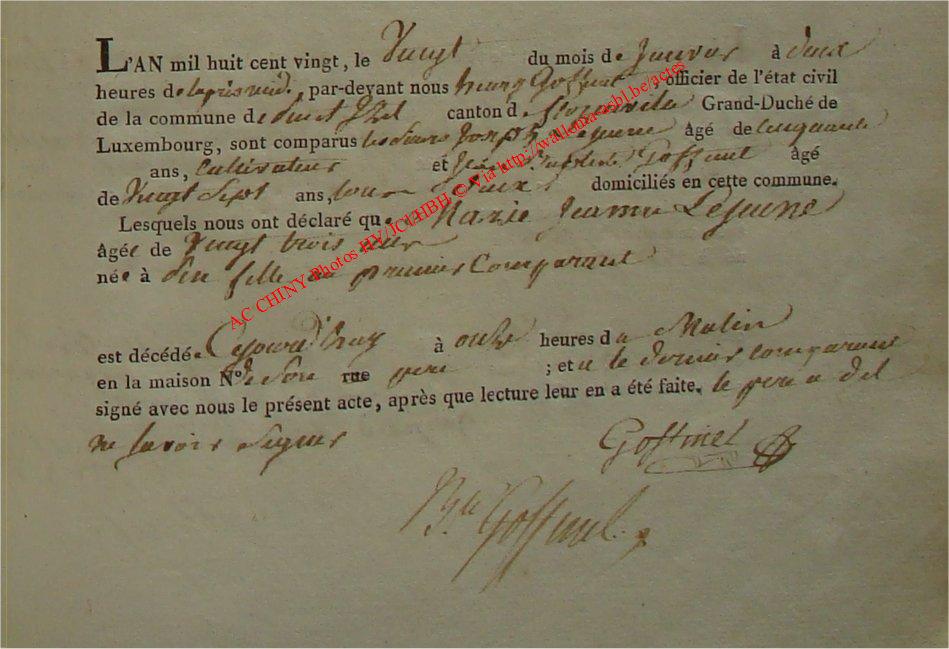 L'AN mil huit cent vingt, le Vingt du mois de Janvier à deux
heures de , par-devant nous henry Goffinet , officier de l'état civil
de la commune de canton de florenville Grand-Duché de
Luxembourg, sont comparus les sieurs Joseph Lejeune âgé de Cinquante
ans, Cultivateur et Jean Goffinet âgé
de Vingt Sept ans, tous deux domiciliés en cette commune.
Lesquels nous ont déclaré que Marie Jeanne Lejeune
âgée de Vingt trois ans
née à fille du premier Comparant
est décédée à onze heures du Matin
en la maison No. de son rue pere ; et a le dernier comparant
signé avec nous le présent acte, après que lecture leur en a été faite. le pere a
ne savoir Signer
Goffinet
Goffinet
AC CHINY Photos HV/JCl/HBH © Via http://wallonia-asbl.be/actes